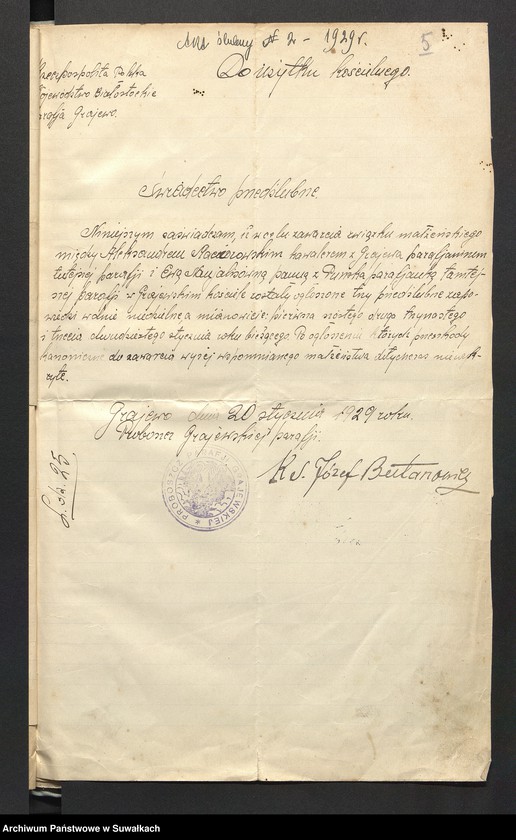 Akt ślubny № 2 – 1929 r.
5
Do użytku kościelnego.
Rzeczpospolita Polska
Województwo Białostockie
Parafja Grajewo.
Świadectwo przedślubne.
Niniejszym zaświadczam, iż w celu zawarcia związku małżeńskiego
między Aleksandrem kawalerem z Grajewa parafjaninem
tutejszej parafji i Ewą panną z parafjanką tamtej-
szej parafji w Grajewskim kościele zostały ogłoszone trzy przedślubne zapo-
wiedzi w dnie niedzielne a mianowicie: pierwsza szóstego druga trzynastego
i trzecia dwudziestego stycznia roku bieżącego. Po ogłoszeniu których przeszkody
kanoniczne do zawarcia wyżej wspomnianego małżeństwa dotychczas niewyk-
ryte.
Grajewo dnia 20 stycznia 1929 roku.
Proboszcz Grajewskiej parafji:
Ks. Józef
L. dz. 25.
PROBOSTWO PARAFJI GRAJEWSKIEJ
Archiwum Państwowe w Suwałkach